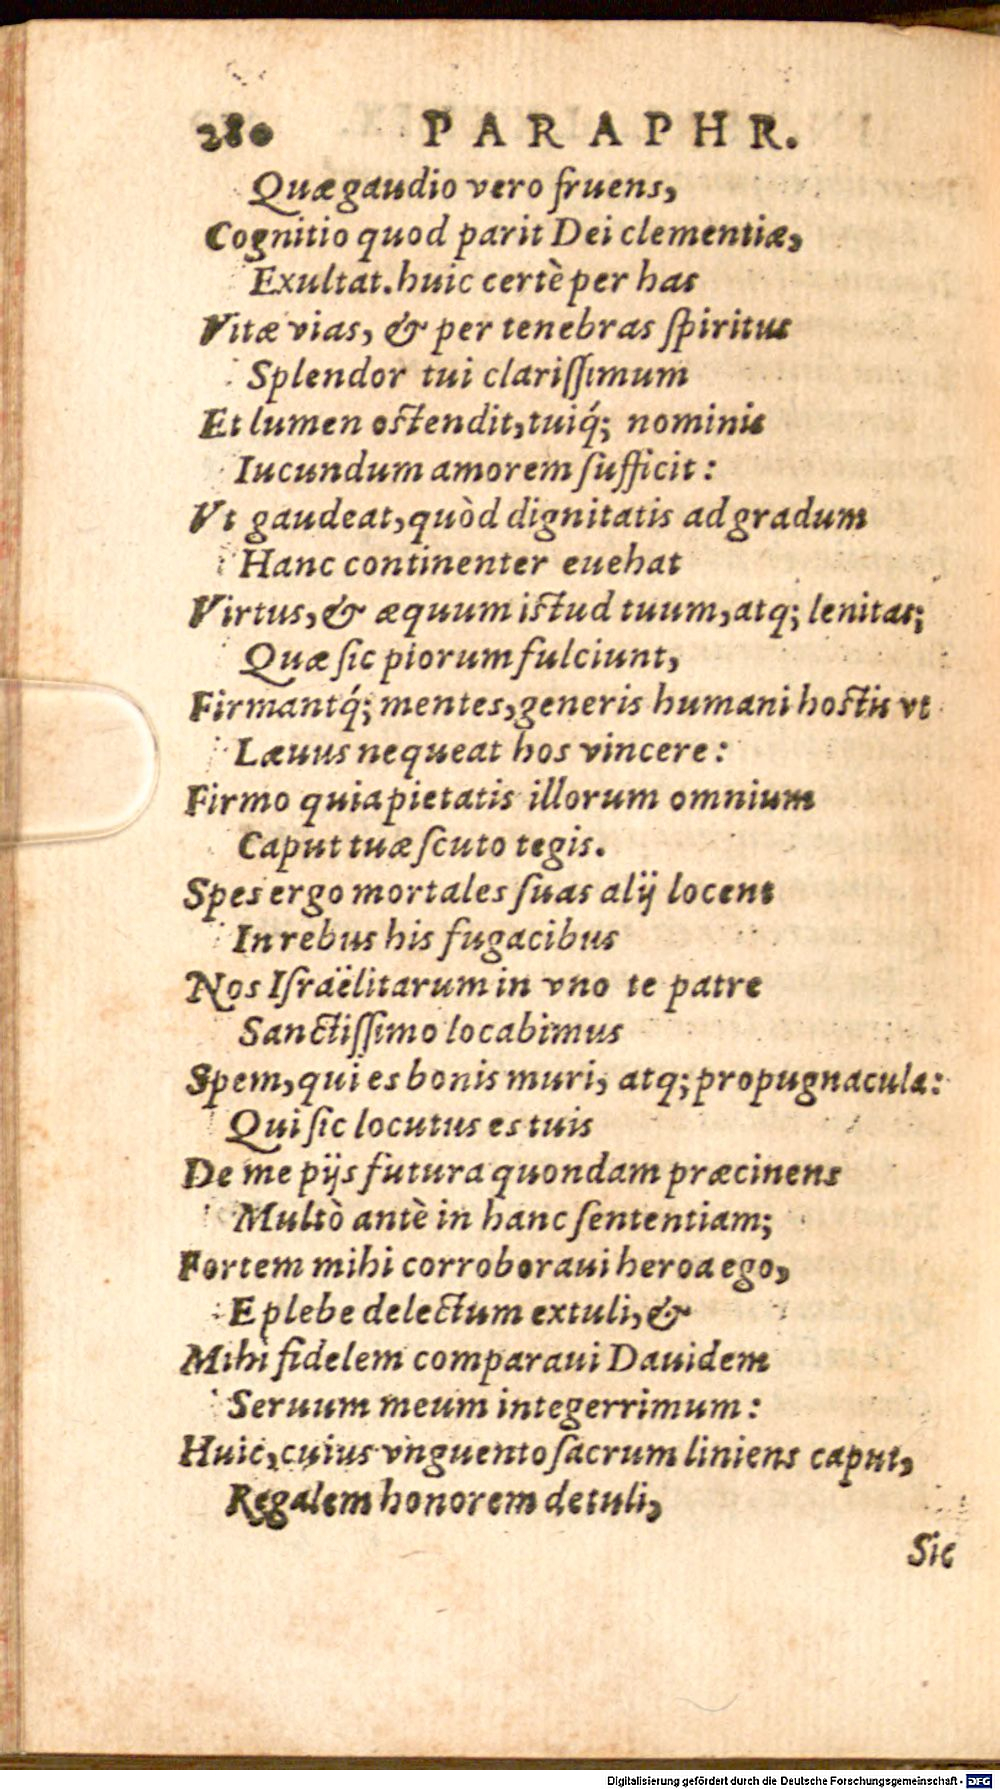 280 PARAPHR.
Quæ gaudio vero fruens,
Cognitio quod parit Dei clementiæ,
Exultat. huic certè per has
Vitæ vias, & per tenebras ſpiritus
Splendor tui clariſſimum
Et lumen oſtendit, tuiq́; nominis
Iucundum amorem ſufficit:
Vt gaudeat, quòd dignitatis ad gradum
Hanc continenter euehat
Virtus, & æquum iſtud tuum, atq; lenitas;
Quæ ſic piorum fulciunt,
Firmantq́; mentes, generis humani hoſtis vt
Læuus nequeat hos vincere:
Firmo quia pietatis illorum omnium
Caput tuæ ſcuto tegis.
Spes ergo mortales ſuas alij locent
In rebus his fugacibus
Nos Iſraëlitarum in vno te patre
Sanctiſſimo locabimus
Spem, qui es bonis muri, atq; propugnacula:
Qui ſic locutus es tuis
De me pijs futura quondam præcinens
Multò antè in hanc ſententiam;
Fortem mihi corroboraui heroa ego,
E plebe delectum extuli, &
Mihi fidelem comparaui Dauidem
Seruum meum integerrimum:
Huic, cuius vnguento ſacrum liniens caput,
Regalem honorem detuli,
Sic
Digitalisierung gefördert durch die Deutsche Forschungsgemeinschaft - DFG